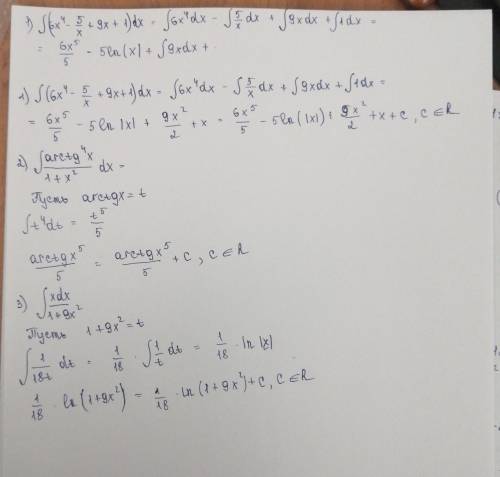 1) ∫(6x⁴ - 5/x + 9x + 1)dx = ∫6x⁴dx - ∫5/x dx + ∫9xdx + ∫1dx =
= 6x⁵/5 - 5ln(x) + ∫9xdx +
1) ∫(6x⁴ - 5/x + 9x + 1)dx = ∫6x⁴dx - ∫5/x dx + ∫9xdx + ∫1dx =
= 6x⁵/5 - 5ln|x| + 9x²/2 + x = 6x⁵/5 - 5ln(|x|) + 9x²/2 + x + c, c ∈ R
2) ∫ arctg⁴x/1+x² dx =
Пусть arctgx = t
∫t⁴dt = t⁵/5
arctgx⁵/5 = arctgx⁵/5 + c, c ∈ R
3) ∫ xdx/1+9x²
Пусть 1+9x² = t
∫ 1/18t dt = 1/18 · ∫ 1/t dt = 1/18 · ln|t|
1/18 · ln(1+9x²) = 1/18 · ln(1+9x²) + c, c ∈ R